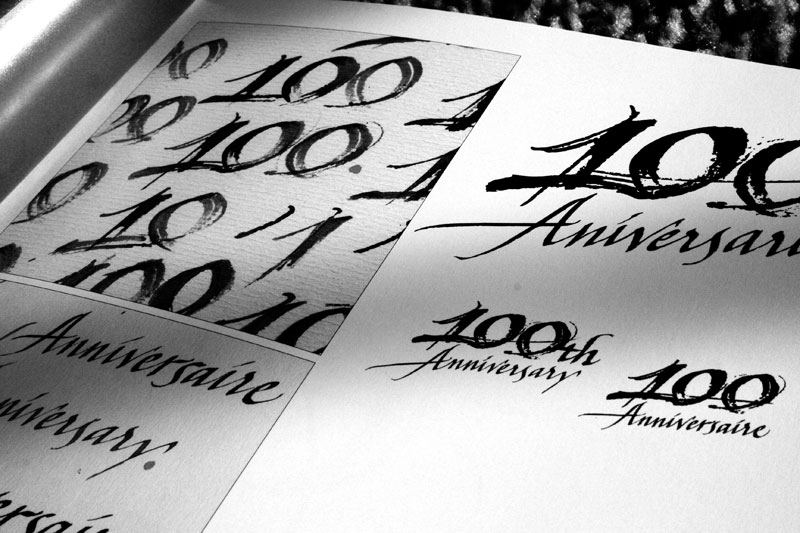 100
100
100.
10
100
10
Anniversaire
Anniversary.
100
Aniversari
100th
Anniversary
100
Anniversaire